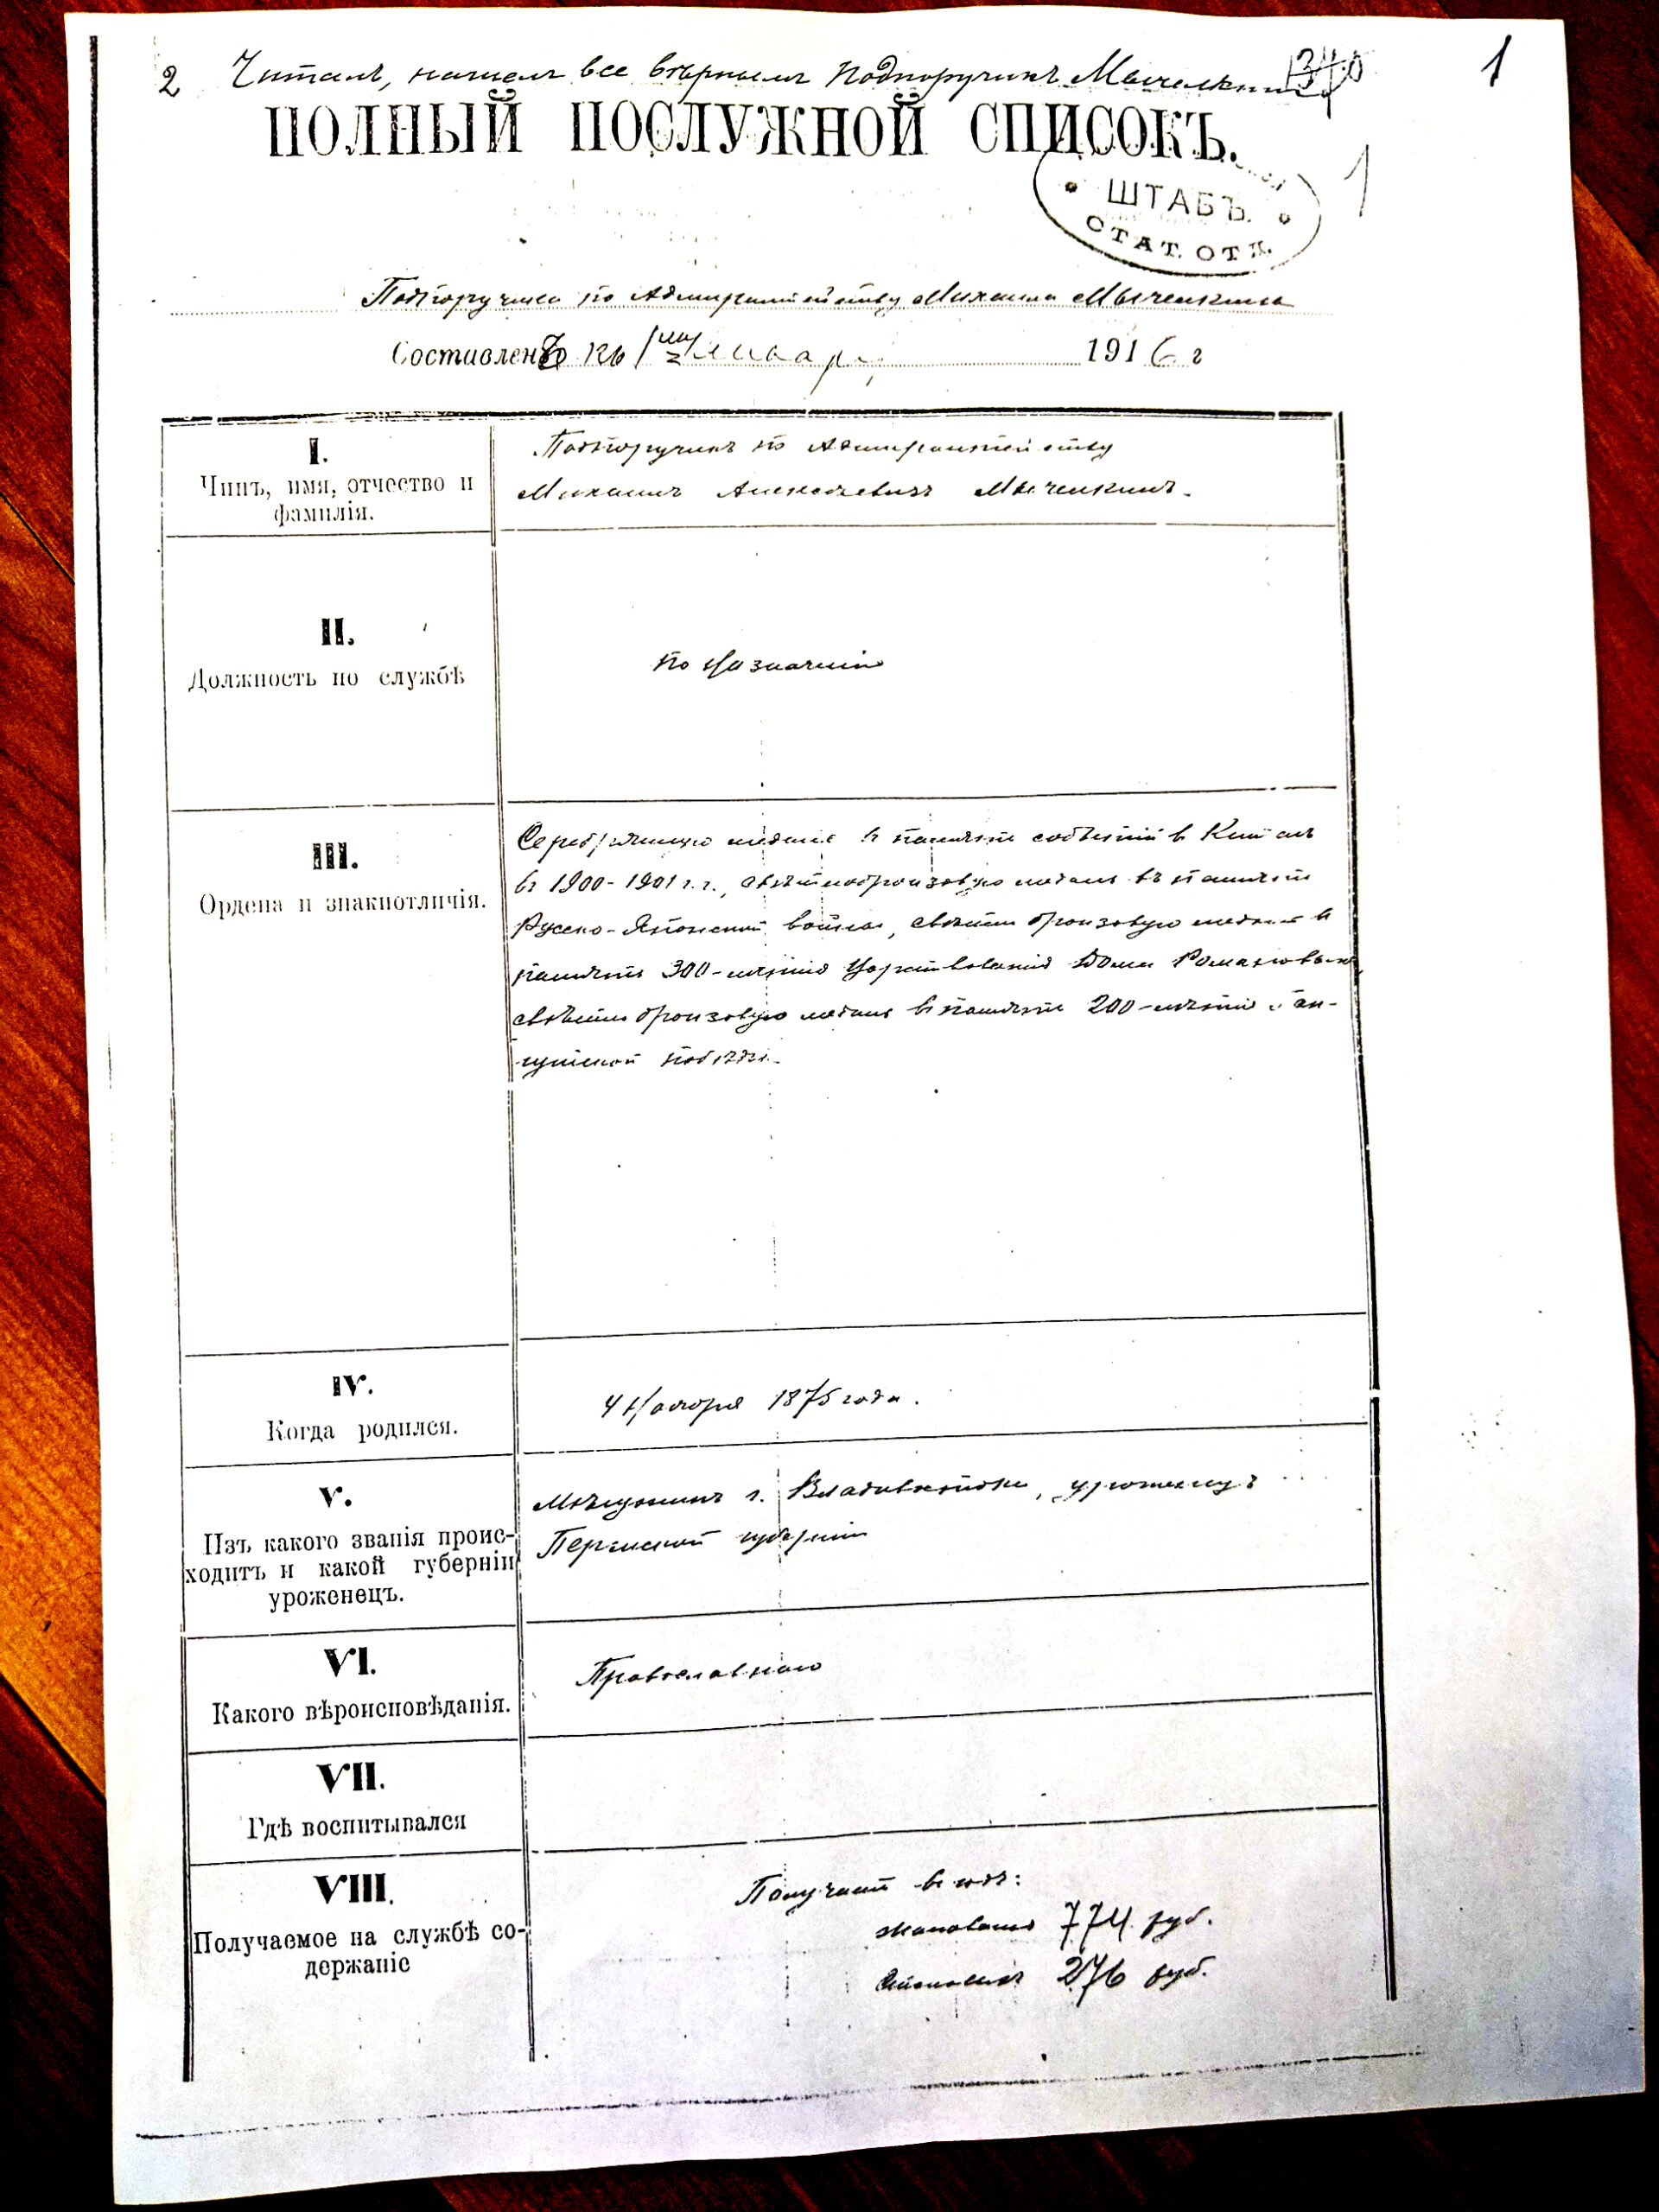 2 Читалъ, нашелъ все вѣрнымъ Подпоручикъ 1340 1
ПОЛНЫЙ ПОСЛУЖНОЙ СПИСОКЪ.
1
ШТАБЪ.
СТАТ. ОТД.
Подпоручика по Адмиралтейству Михаила Мычелкина
Составленъ къ 1му Января 1916 г
I.
Чинъ, имя, отчество и
фамилія.
Подпоручикъ по Адмиралтейству
Михаилъ Алексѣевичъ Мычелкинъ.
II.
Должность по службѣ
по назначенію
III.
Ордена и знакиотличія.
Серебрянную медаль въ память событій в Китаѣ
въ 1900-1901 г.г., свѣтлобронзовую медаль въ память
Русско-Японской войны, свѣтло бронзовую медаль в
память 300-лѣтія Царствованія Дома Романовыхъ,
свѣтло бронзовую медаль въ память 200-лѣтія Ган-
гутской побѣды.
IV.
Когда родился.
4 Ноября 1875 года.
V.
Изъ какого званія проис-
ходитъ и какой губерніи
уроженецъ.
Мѣщанинъ г. Владивостока, уроженецъ
Пермской губерніи
VI.
Какого вѣроисповѣданія.
Православнаго
VII.
Гдѣ воспитывался
VIII.
Получаемое на службѣ со-
держаніе
Получаетъ въ годъ:
жалованья 774 руб.
Столовыхъ 276 руб.